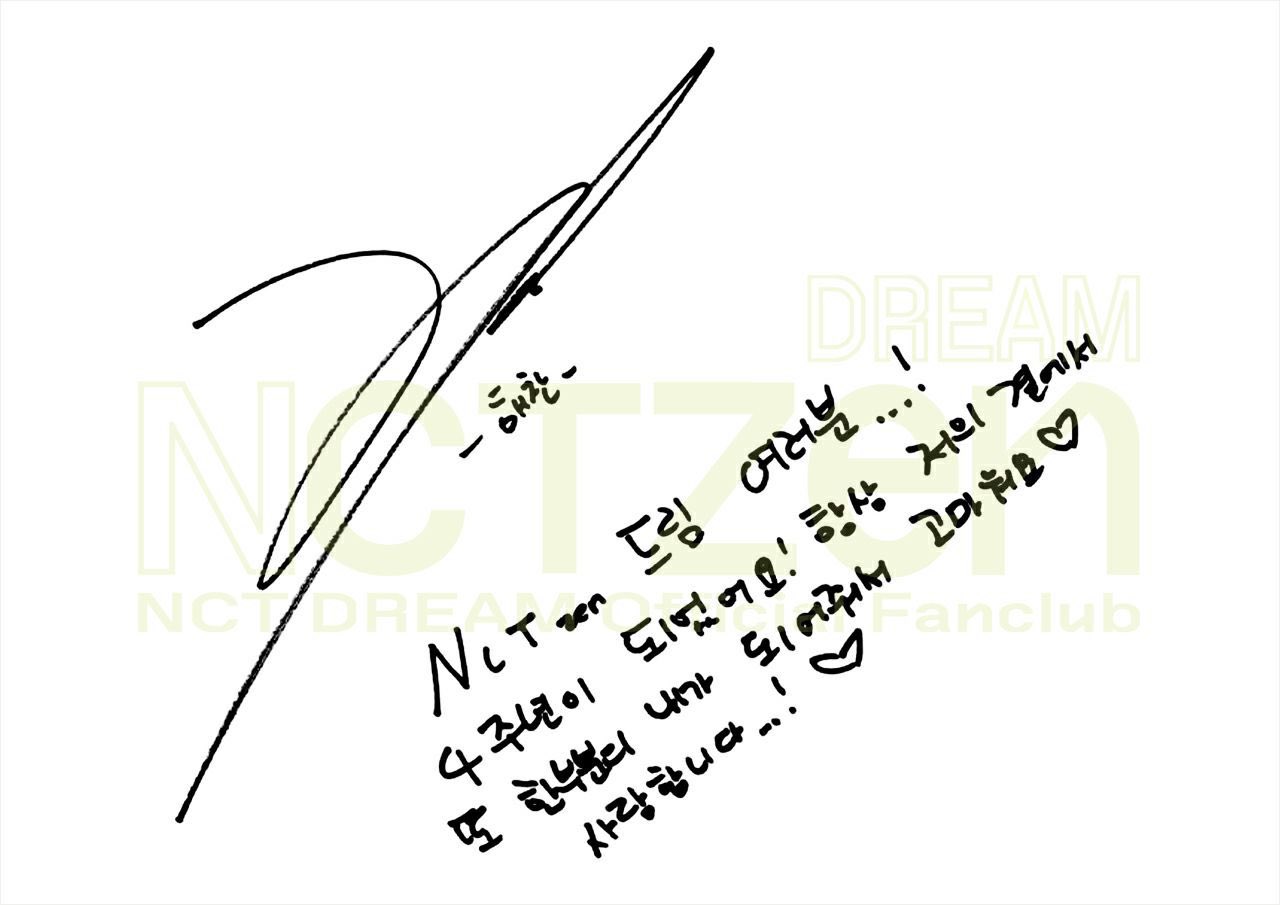 DREAM
NCTzen
NCT DREAM Official Fanclub
-해찬-
NCTzen 드림 여러분...!
4주년이 되었어요! 항상 저의 곁에서
또 한부분의 내가 되어줘서 고마워요♡
사랑합니다...! ♡